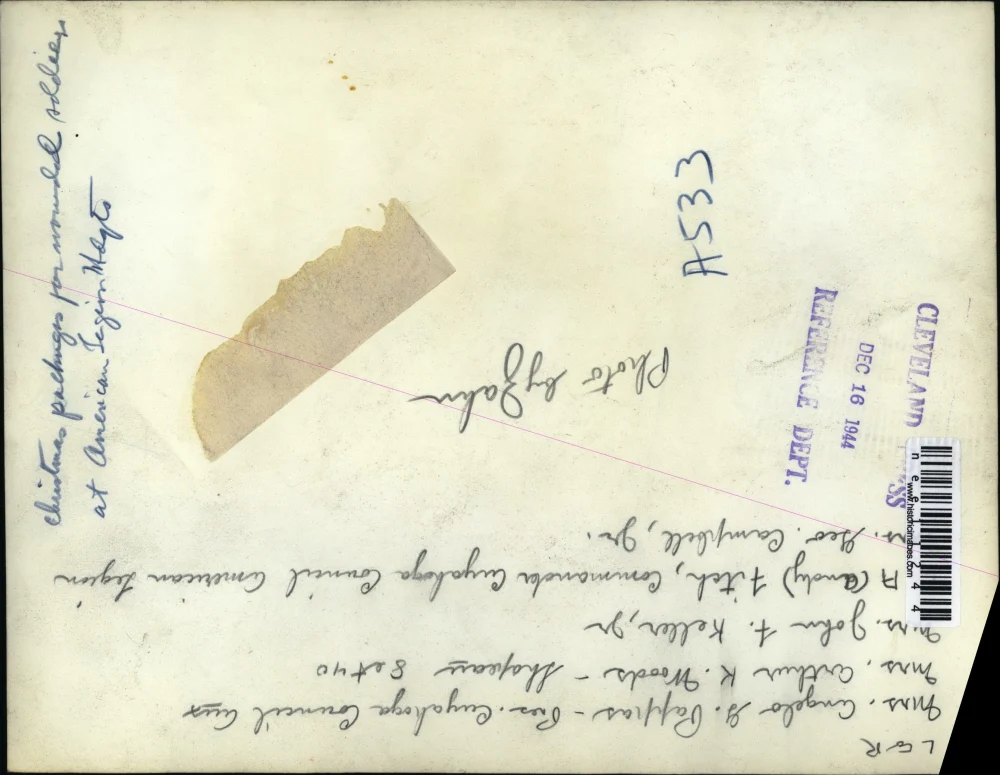 Christmas packages for wounded soldiers
at American Legion Hdqts
A-533
CLEVELAND
DEC 16 1944
REFERENCE DEPT.
Photo by Zahn
L to R
Mrs. Angelo G. Pappas - Pres. Cuyahoga Council Aux
Mrs. Arthur K. Woods - Chapeau 8 et 40
Mrs. John F. Keller, Jr
A (Andy) Fitch, Commander Cuyahoga Council American Legion
Geo. Campbell, Jr.
www.historicimages.com